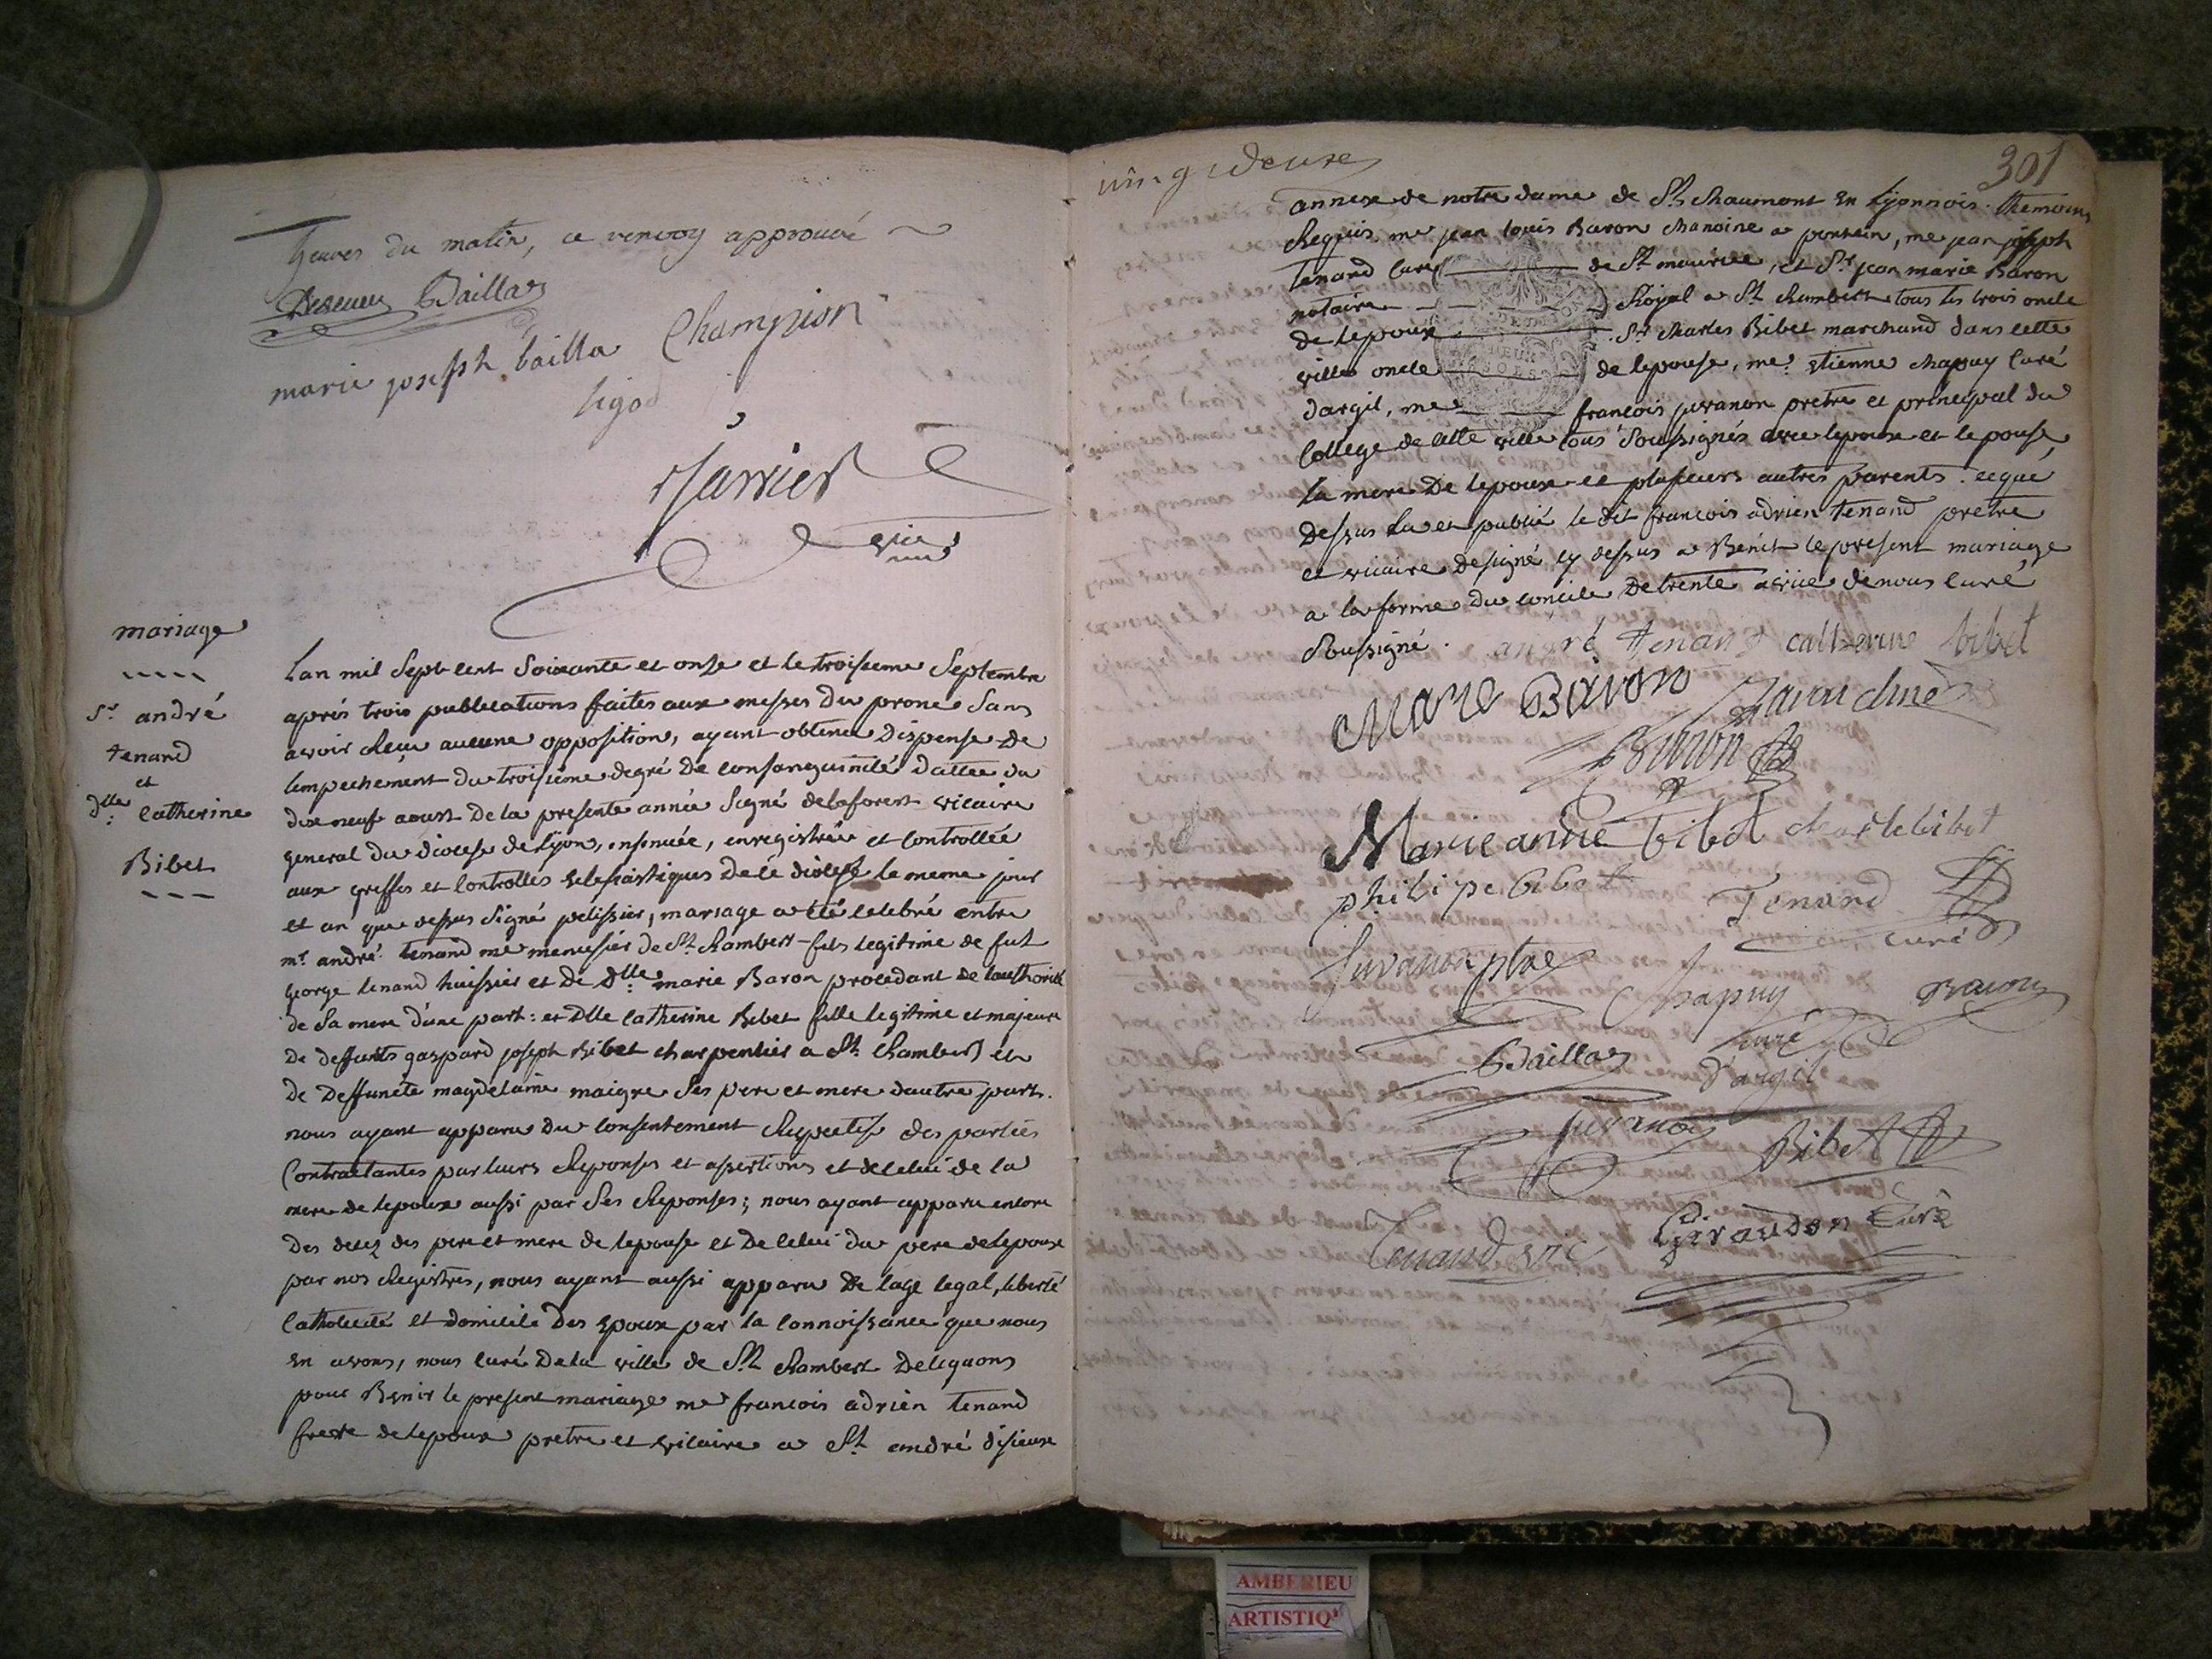 heures du matin, ce renvoy approuvé
Baillas
marie joseph bailla Champion
sigod
Jarrier
vic
mariage
Sr andré
tenand
et
dlle catherine
Bibet
Lan mil Sept cent Soixante et onse et le troisieme Septembre
aprés trois publications faites aux messes du prone Sans
avoir Reçu aucune opposition, ayant obtenu Dispense De
lempechement du troisieme degré De consanguinité Dattée du
dix neuf aoust De la presente année Signé delaforest vicaire
general du diocese de Lyon, insinuée, enregistrée et controllée
aux greffes et controlles eclesiastiques De cé diocese le meme jour
et an que dessus Signé pelissier, mariage a été celebré entre
mr andré tenand me menusier de St Rambert fils legitime de fut
george tenand huissier et de dlle marie Baron procedant de lauthorité
de Sa mere d'une part: et Dlle catherine Bibet fille legitime et majeure
De deffunts gaspard joseph Bibet charpentier a St Rambert et
de Deffuncte magdelaine maigre Ses pere et mere dautre part.
nous ayant apparu du consentement Respectif des parties
Contractantes par leurs Reponses et assertions et de celui de la
mere de lepoux aussi par Ses Reponses; nous ayant apparu encore
Des decez des pere et mere de lepouse et De celui du pere de lepoux
par nos Registres, nous ayant aussi apparu De lage legal, liberté
Catholicité et domicile Des epoux par la connoissance que nous
en avons, nous curé De la ville de St Rambert Deleguons
pour Benir le present mariage me francois adrien tenand
frere de lepoux pretre et vicaire a St andré disieux
vingt deuxe
301
annexe de notre dame de St Chaumont en Lyonnois. themoins
Requis me jean louis Baron chanoine a , me jean joseph
tenand curé de St maurice, et Sr jean marie Baron
notaire Royal a St Rambert tous les trois oncle
de lepoux Sr charles Bibet marchand dans cette
ville oncle de lepouse, me etienne chapuy Curé
dargil, me francois juvanon pretre et principal du
College de cette ville tous Soussignés avec lepoux et lepouse,
la mere De lepoux et plusieurs autres parents. ce que
Dessus lu et publié le dit francois adrien tenand pretre
et vicaire designé cy dessus a Benit le present mariage
a la forme du concile De trente a vüe De nous curé
Soussigné. andré tenand catherine bibet
Marie Baron
Baron
Marie anne bibet charle bibet
philipe bibet Tenand
curé
Juvanon ptre Chapuy Baron
curé
Baillas d'argil
juvanon Bibet
Tenand vic Giraudon Curé
AMBERIEU
ARTISTIQ